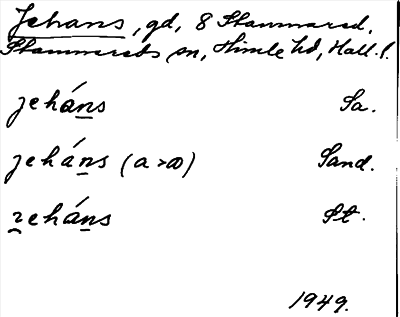 Jehans, gd, 8 Stammared,
Stammareds sn, Himle hd, Hall. l.
jeháns Sa.
jeháns (a > ɑ) Sand.
ɀeháns St.
1949.